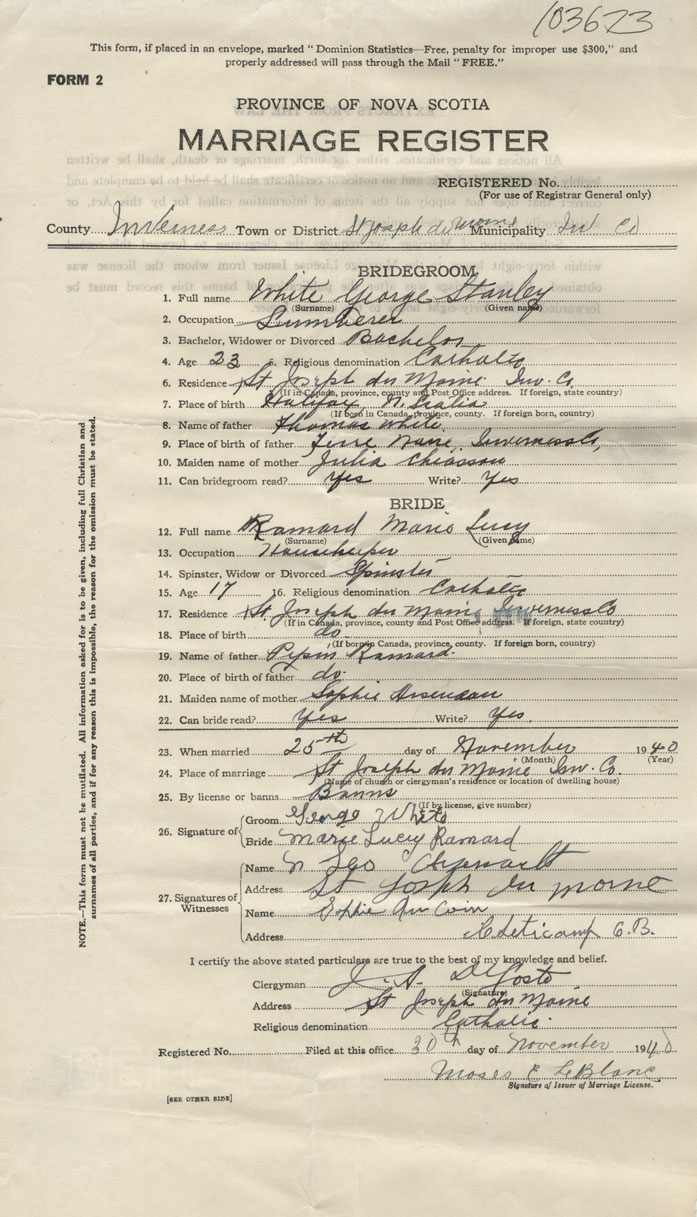 103673
This form, if placed in an envelope, marked "Dominion Statistics—Free, penalty for improper use $300," and
properly addressed will pass through the Mail "FREE."
FORM 2
PROVINCE OF NOVA SCOTIA
MARRIAGE REGISTER
REGISTERED No.
(For use of Registrar General only)
County Inverness Town or District St Joseph du Moine Municipality Inv Co
BRIDEGROOM
1. Full name White George Stanley
(Surname) (Given name)
2. Occupation Lumberer
3. Bachelor, Widower or Divorced Bachelor
4. Age 23 5. Religious denomination Catholic
6. Residence St Joseph du Moine Inv. Co.
(If in Canada, province, county and Post Office address. If foreign, state country)
7. Place of birth Halifax N. Scotia
(If born in Canada, province, county. If foreign born, country)
8. Name of father Thomas White
9. Place of birth of father Terre Noire, Inverness Co,
10. Maiden name of mother Julia Chiasson
11. Can bridegroom read? Yes Write? Yes
BRIDE
12. Full name Ramard Marie Lucy
(Surname) (Given name)
13. Occupation Housekeeper
14. Spinster, Widow or Divorced Spinster
15. Age 17 16. Religious denomination Catholic
17. Residence St Joseph du Moine Inverness Co
(If in Canada, province, county and Post Office address. If foreign, state country)
18. Place of birth do
(If born in Canada, province, county. If foreign born, country)
19. Name of father Pepin Ramard
20. Place of birth of father do
21. Maiden name of mother Sophie Arseneau
22. Can bride read? Yes Write? Yes
23. When married 25th day of November 1940
(Month) (Year)
24. Place of marriage St Joseph du Moine Inv. Co.
(Name of church or clergyman's residence or location of dwelling house)
25. By license or banns Banns
(If by license, give number)
26. Signature of
Groom George White
Bride Marie Lucy Ramard
27. Signatures of Witnesses
Name Leo
Address St Joseph du moine
Name Sophie Au Coin
Address Cheticamp C.B.
I certify the above stated particulars are true to the best of my knowledge and belief.
Clergyman J. A. DeCoste
(Signature)
Address St Joseph du Moine
Religious denomination Catholic
Registered No. Filed at this office 30th day of November 1940
Moses E LeBlanc
Signature of Issuer of Marriage License.
[SEE OTHER SIDE]
NOTE.—This form must not be mutilated. All information asked for is to be given, including full Christian and
surnames of all parties, and if for any reason this is impossible, the reason for the omission must be stated.